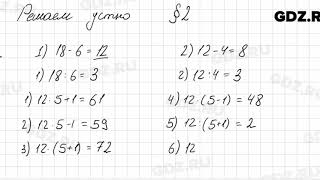 Решаем устно §2
GDZ.RU
1) 18-6=12
2) 12-4=8
1) 18:6=3
12:4=3
1) 12·5+1=61
4) 12·(5-1)=48
2) 12·5-1=59
5) 12:(5+1)=2
3) 12·(5+1)=72
6) 12